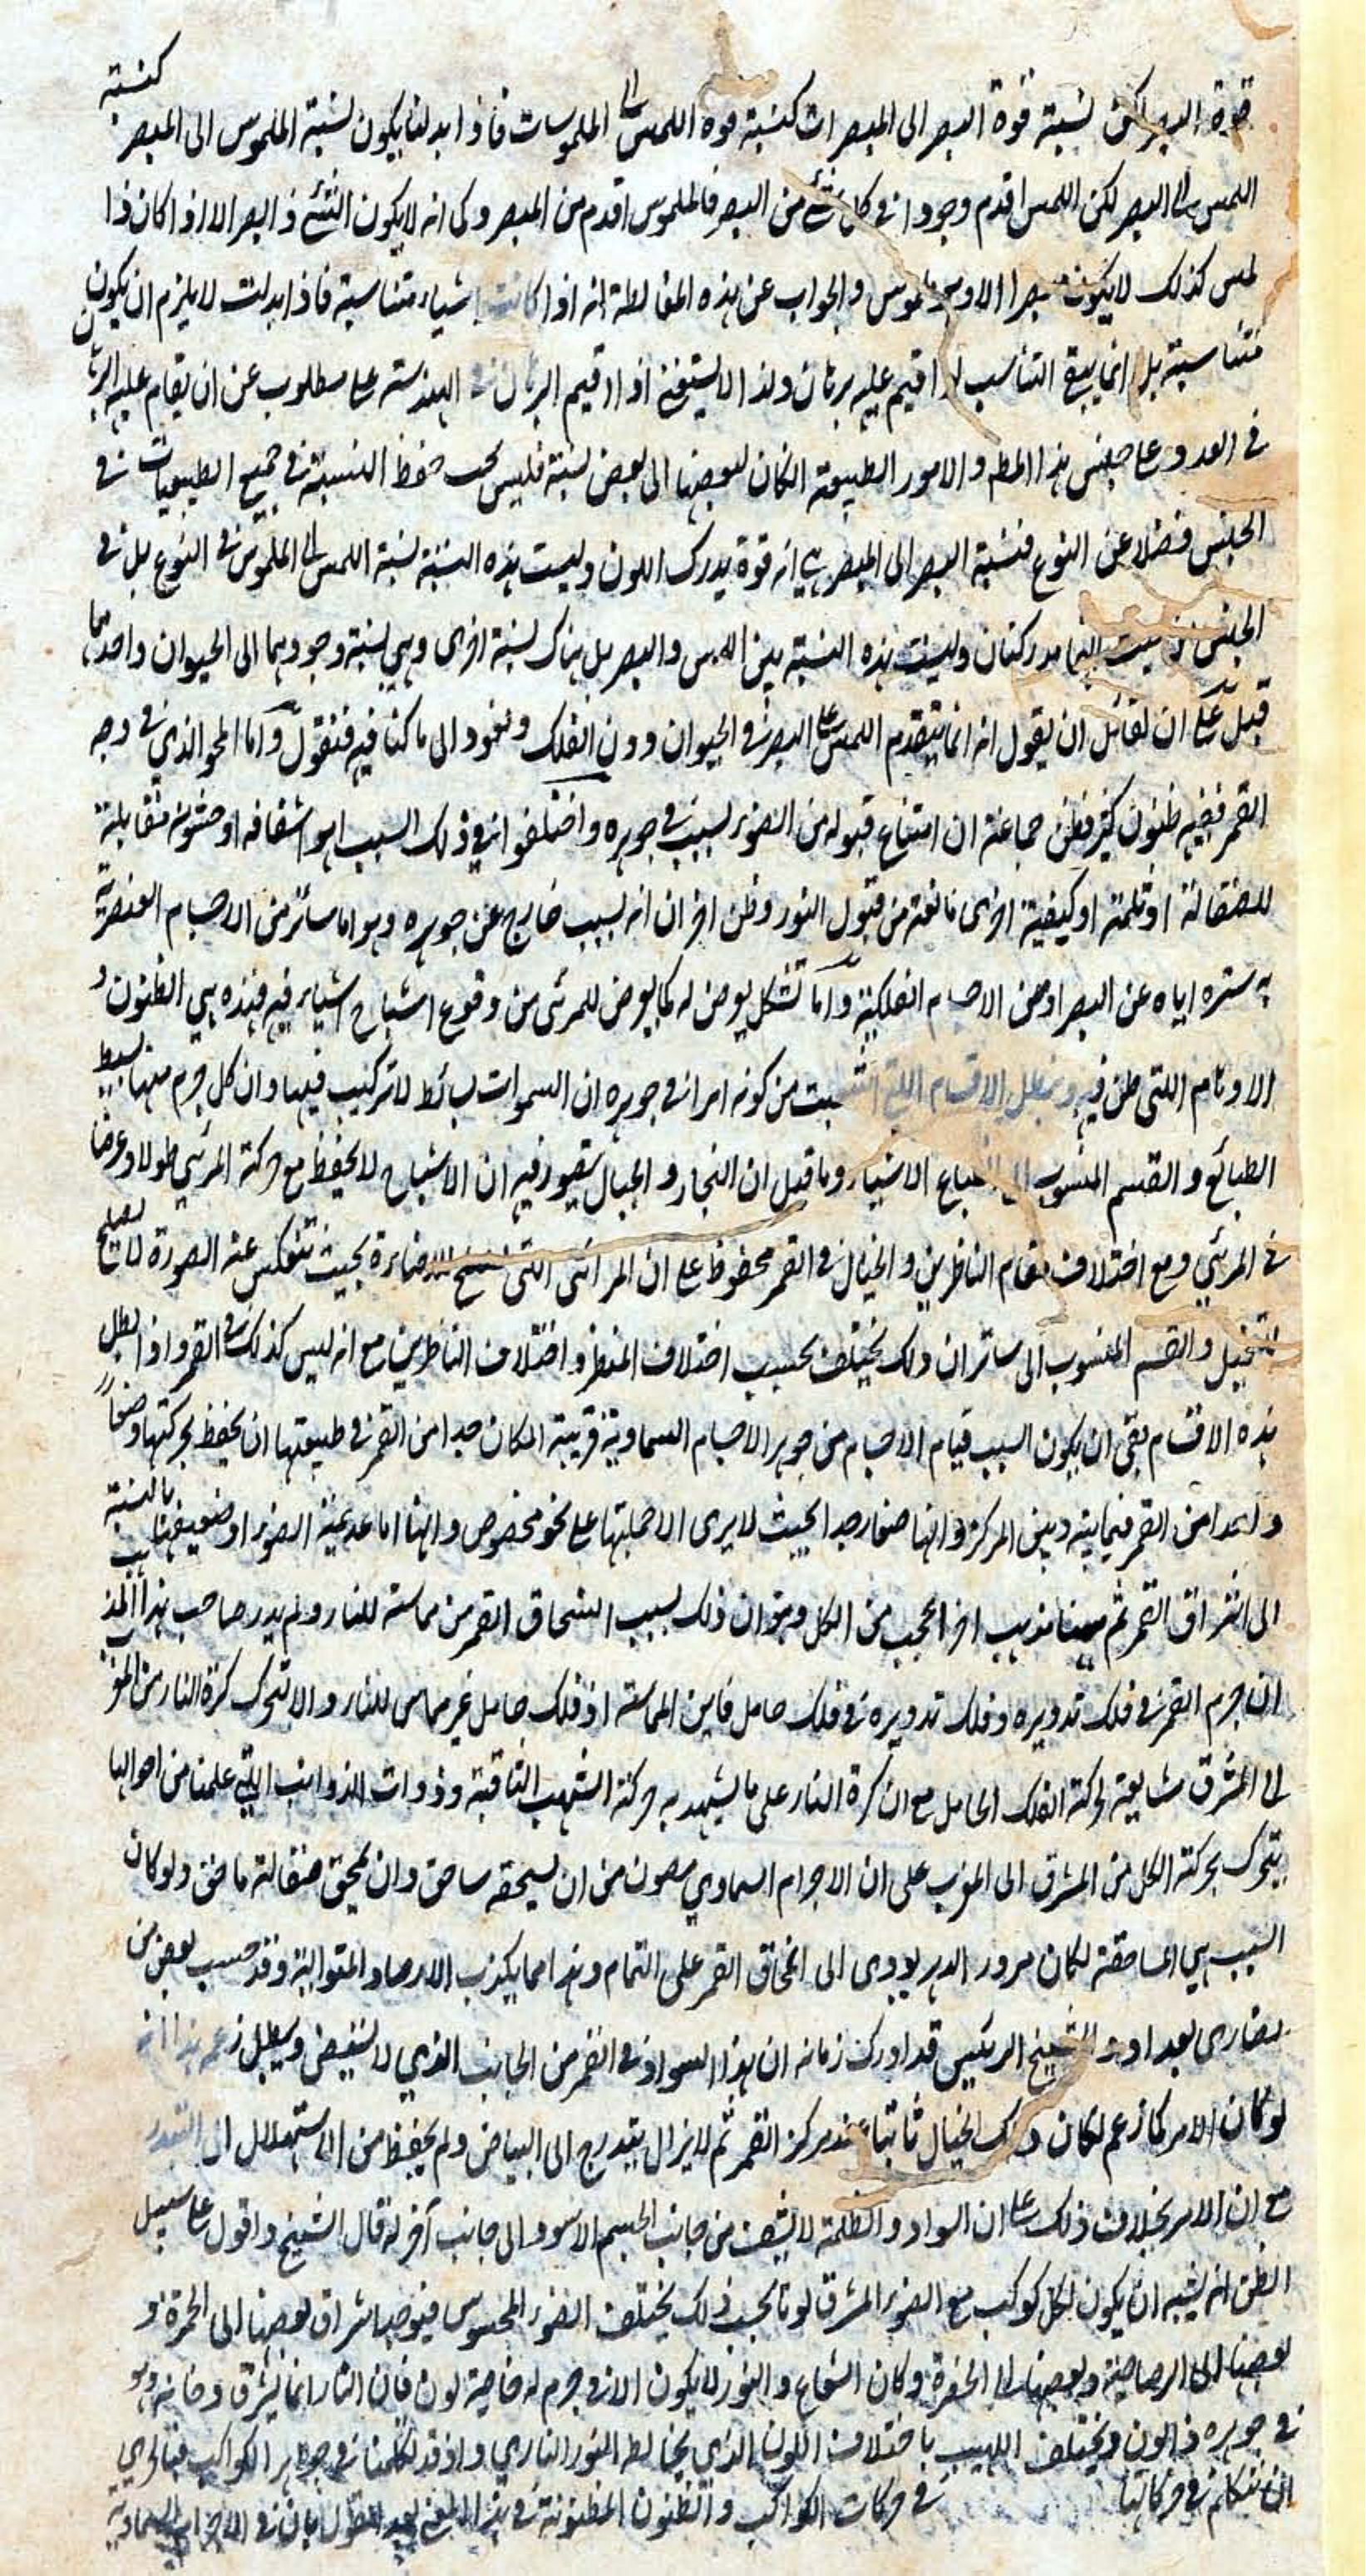 قوة البصر لكن نسبة قوة البصر الى المبصرات كنسبة قوة اللمس الى الملموسات فاذا ابدلنا يكون نسبة الملموس الى المبصر كنسبة
اللمس الى البصر لكن اللمس اقدم وجودا في كل شئ من البصر فالملموس اقدم من المبصر وكما انه لا يكون الشئ ذا بصر الا اذا كان ذا
لمس كذلك لا يكون مبصرا الا وهو ملموس والجواب عن هذه المغالطة انه اذا كانت اشياء متناسبة فاذا ابدلت لا يلزم ان يكون
متناسبة بل انما يبقى التناسب لو اقيم عليه برهان ولذا لا يستغنى اذا اقيم البرهان في الهندسة على مطلوب عن ان يقام عليه البرهان
في العدد وعلى جنس هذا المط والامور الطبيعية ان كان لبعضها الى بعض نسبة فليس يجب حفظ النسبة في جميع الطبيعيات في
الجنس فضلا عن النوع فنسبة البصر الى المبصر هي انه قوة يدرك اللون وليست هذه النسبة نسبة اللمس الى الملموس في النوع بل في
الجنس من حيث انهما مدركتان وليست هذه النسبة بين اللمس والبصر بل هناك نسبة اخرى وهي نسبة وجودهما الى الحيوان واحدهما
قبل على ان لقائل ان يقول انه انما يتقدم اللمس على البصر في الحيوان دون الفلك ونعود الى ما كنا فيه فنقول واما المحو الذي في وجه
القمر ففيه ظنون كثير فظن جماعة ان امتناع قبوله من الضوء لسبب في جوهره واختلفوا في ذلك السبب اهو اشفافه او خشونة مقابلة
للصقالة او ثلمة او كيفية اخرى مانعة من قبول النور وظن اخران انه بسبب خارج عن جوهره وهو اما ساتر من الاجسام العنصرية
يستره اياه عن البصر او من الاجسام الفلكية واما تشكل يعرض له كما يعرض للمرئى من وقوع اشباح اشياء فيه فهذه هي الظنون و
الاوهام اللتي ظن فيه ويبطل الاقسام اللتي انتسبت من كونه امرا في جوهره ان السموات بسائط لا تركيب فيها وان كل جرم منها بسيط
الطبائع والقسم المنسوب الى انطباع الاشباح وما قيل ان البحار والجبال يتصور فيه ان الاشباح لا يحفظ مع حركة المرئي طولا وعرضا
في المرئي ومع اختلاف مقام الناظرين والخيال في القمر محفوظ على ان المرائى التي بحيث تنعكس عنه الصورة لا يصلح
للتخيل والقسم المنسوب الى ساتر ان ذلك يختلف بحسب اختلاف المنظر واختلاف الناظرين مع انه ليس كذلك في القمر واذا بطل
هذه الاقسام بقى ان يكون السبب قيام الاجسام من جوهر الاجسام السماوية قريبة المكان جدا من القمر في طبيعتها ان يحفظ بحركتها وضعا
واحدا من القمر فيما بينه وبين المركز وانها صغار جدا بحيث لا يرى الا جملتها على نحو مخصوص وانها اما عديمة الضوء او ضعيفتها بالنسبة
الى اشراق القمر ثم ههنا مذهب اخر اعجب من الكل وهو ان ذلك بسبب انسحاق القمر من مماسة للنار ولم يدر صاحب هذا المذهب
ان جرم القمر في فلك تدويره وفلك تدويره في فلك حامل فاين المماسة اذ فلك حامل غير مماس للنار والا لتحرك كرة النار من المغرب
الى المشرق مشايعة لحركة الفلك الحامل مع ان كرة النار على ما يشهد به حركة الشهب الثاقبة وذوات الذوائب اللتي علمنا من احوالها
يتحرك بحركة الكل من المشرق الى المغرب على ان الاجرام السماوي مصون من ان يسحقه ساحق وان يمحق صقالته ماحق ولو كان
السبب هي المساحقة لكان مرور الدهر يودى الى انمحاق القمر على التمام وهذا مما يكذب الارصاد المتوالية وقد حسب بعض من
نصارى بغداد و الشيخ الرئيس قد ادرك زمانه ان هذا السواد في القمر من الجانب الذي لا يستضئ ويبطل زعمه هذا انه
لو كان الامر كما زعم لكان ذلك الخيال ثابتا عند مركز القمر ثم لا يزال يتدرج الى البياض ولم يحفظ من الاستهلال الى التبدر
مع ان الامر بخلاف ذلك على ان السواد والظلمة لا يشف من جانب الجسم الاسود الى جانب آخر له قال الشيخ واقول على سبيل
الظن انه يشبه ان يكون لكل كوكب مع الضوء المشرق لونا بحسب ذلك يختلف الضوء المحسوس فيوجد اشراق بعضها الى الحمرة و
بعضها الى الرصاصية وبعضها الى الخضرة وكان الشعاع والنور لا يكون الا في جرم له خاصية لون فان النار انما يشرق دخانه وهو
في جوهره ذا لون ويختلف اللهيب باختلاف اللون الذي يخالط النور الناري واذ قد تكلمنا في جوهر الكواكب فبالحري
ان نتكلم في حركاتها في حركات الكواكب والظنون المظنونة في هذا المعنى في الاجرام السماوية